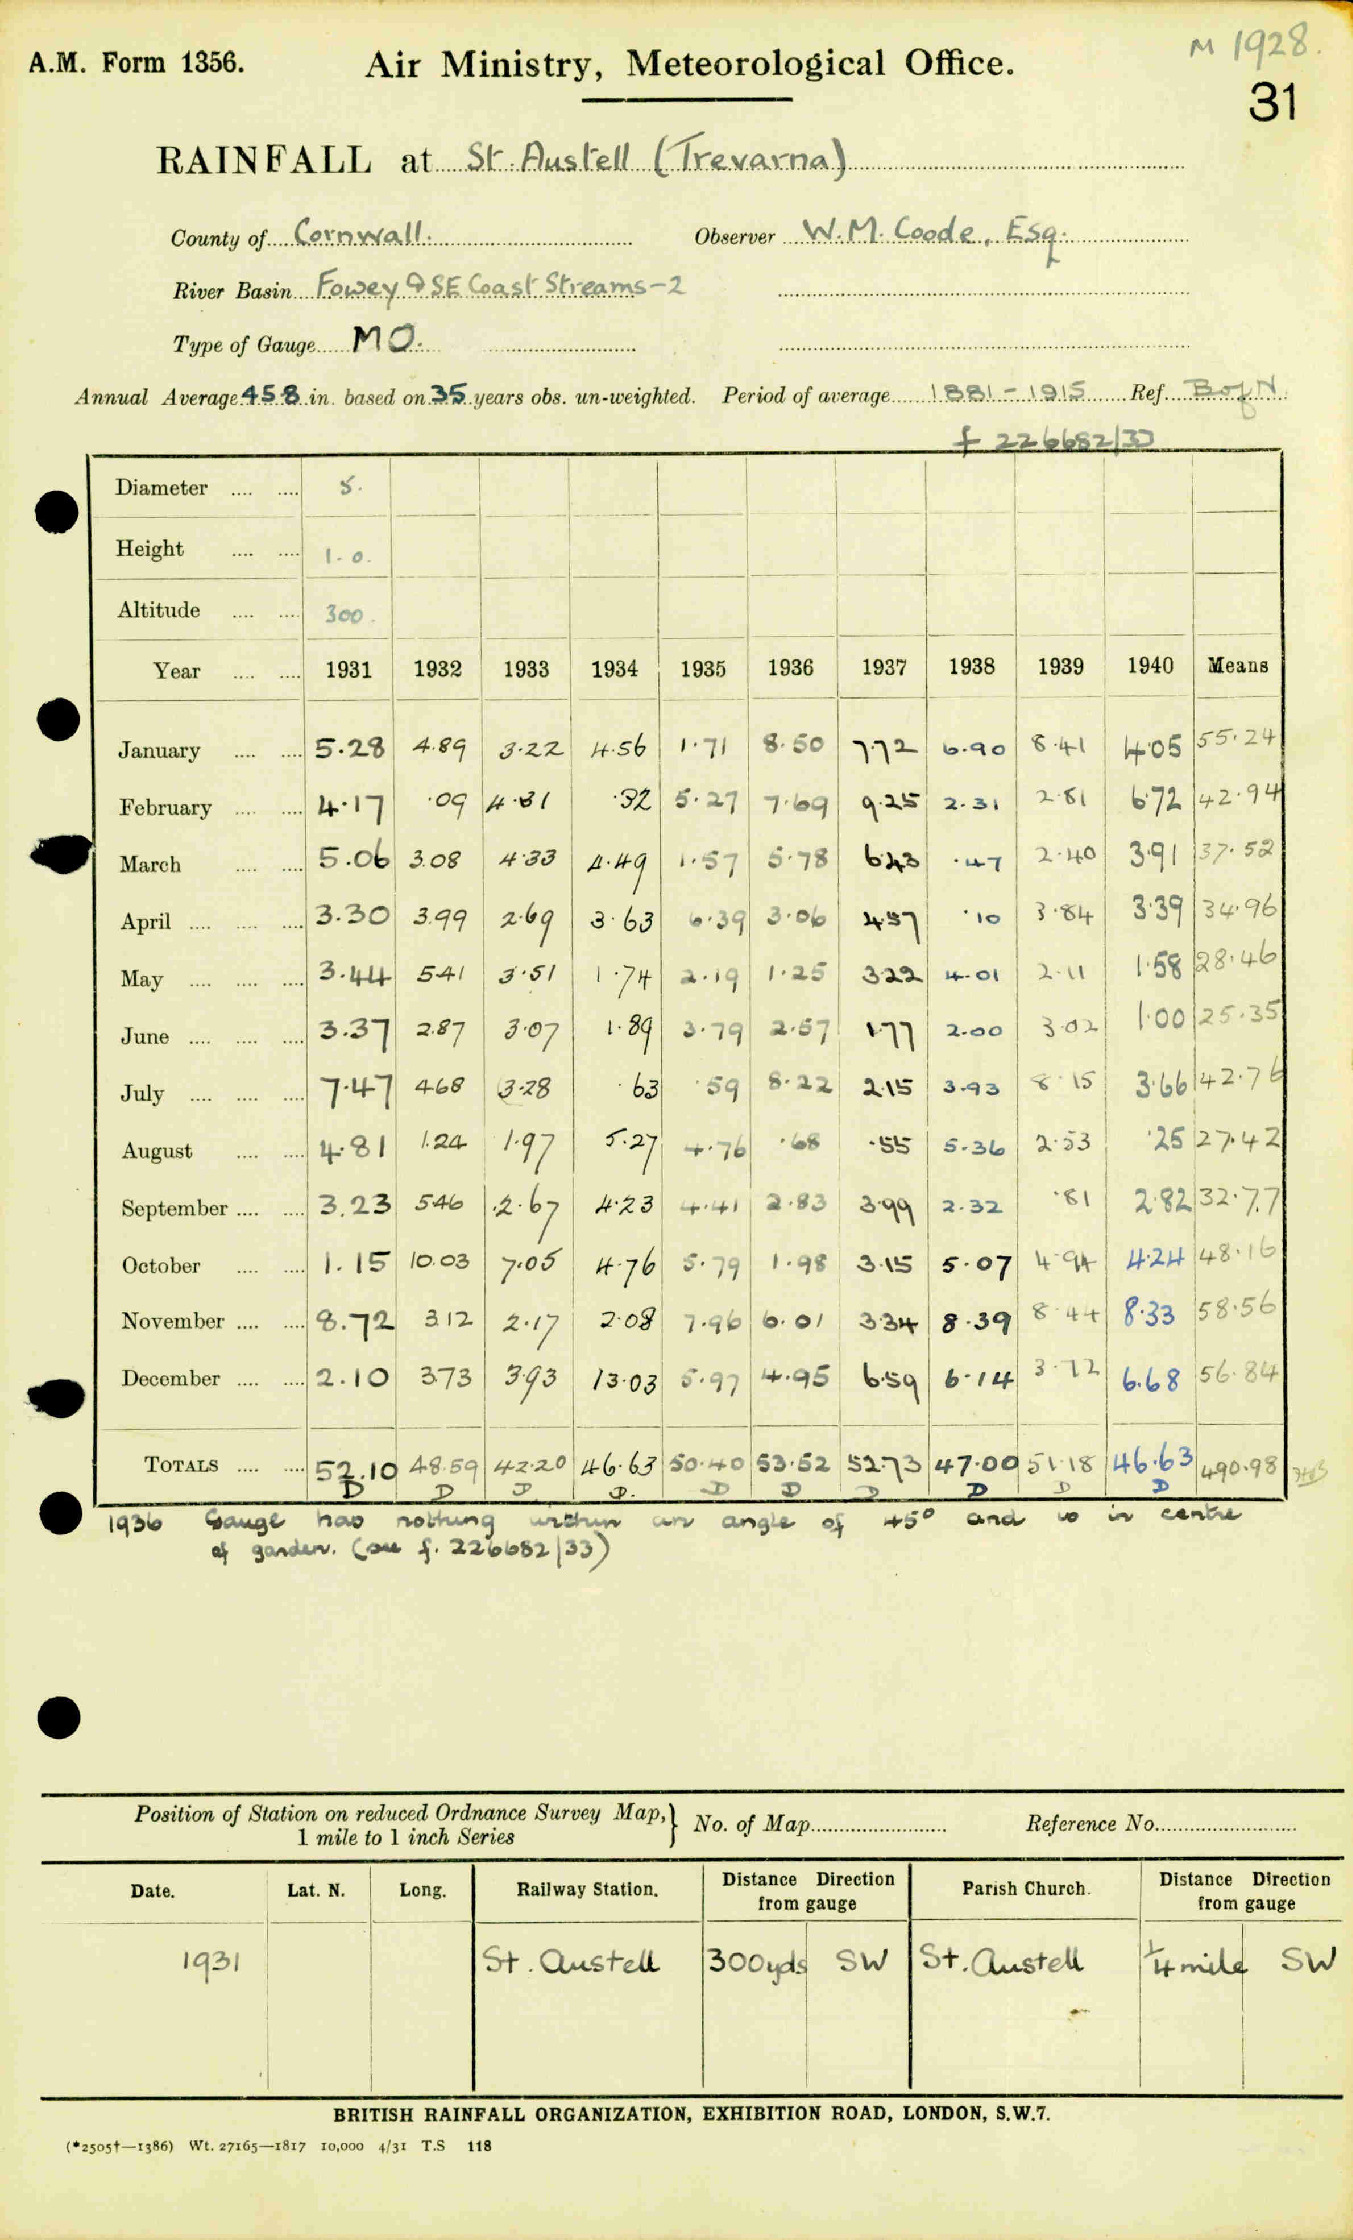 M 1928.
A.M. Form 1356. Air Ministry, Meteorological Office.
31
RAINFALL at St. Austell (Trevarna)
County of Cornwall. Observer W.M. Coode, Esq.
River Basin Fowey & SE Coast Streams-2
Type of Gauge MO.
Annual Average 45.8 in. based on 35 years obs. un-weighted. Period of average 1881-1915 Ref. B of N
f 226682/33
Diameter .... .... 5.
Height .... .... 1.0.
Altitude .... .... 300.
Year .... .... 1931 1932 1933 1934 1935 1936 1937 1938 1939 1940 Means
January .... .... 5.28 4.89 3.22 4.56 1.71 8.50 7.72 6.90 8.41 4.05 55.24
February .... .... 4.17 .09 4.31 .32 5.27 7.69 9.25 2.31 2.81 6.72 42.94
March .... .... 5.06 3.08 4.33 4.49 1.57 5.78 6.43 .47 2.40 3.91 37.52
April .... .... .... 3.30 3.99 2.69 3.63 6.39 3.06 4.57 .10 3.84 3.39 34.96
May .... .... .... 3.44 5.41 3.51 1.74 2.19 1.25 3.22 4.01 2.11 1.58 28.46
June .... .... .... 3.37 2.87 3.07 1.89 3.79 2.57 1.77 2.00 3.02 1.00 25.35
July .... .... .... 7.47 4.68 3.28 .63 .59 8.22 2.15 3.93 8.15 3.66 42.76
August .... .... 4.81 1.24 1.97 5.27 4.76 .68 .55 5.36 2.53 .25 27.42
September .... .... 3.23 5.46 2.67 4.23 4.41 2.83 3.99 2.32 .81 2.82 32.77
October .... .... 1.15 10.03 7.05 4.76 5.79 1.98 3.15 5.07 4.94 4.24 48.16
November .... .... 8.72 3.12 2.17 2.08 7.96 6.01 3.34 8.39 8.44 8.33 58.56
December .... .... 2.10 3.73 3.93 13.03 5.97 4.95 6.59 6.14 3.72 6.68 56.84
TOTALS .... .... 52.10 48.59 42.20 46.63 50.40 53.52 52.73 47.00 51.18 46.63 490.98
D D D D. D D D D D D
1936 Gauge has nothing within an angle of 45° and is in centre
of garden. (see f. 226682/33)
Position of Station on reduced Ordnance Survey Map, 1 mile to 1 inch Series } No. of Map Reference No.
Date. Lat. N. Long. Railway Station. Distance Direction from gauge Parish Church. Distance Direction from gauge
1931 St. Austell 300yds SW St. Austell 1/4 mile SW
BRITISH RAINFALL ORGANIZATION, EXHIBITION ROAD, LONDON, S.W.7.
(*2505†—1386) Wt. 27165—1817 10,000 4/31 T.S 118